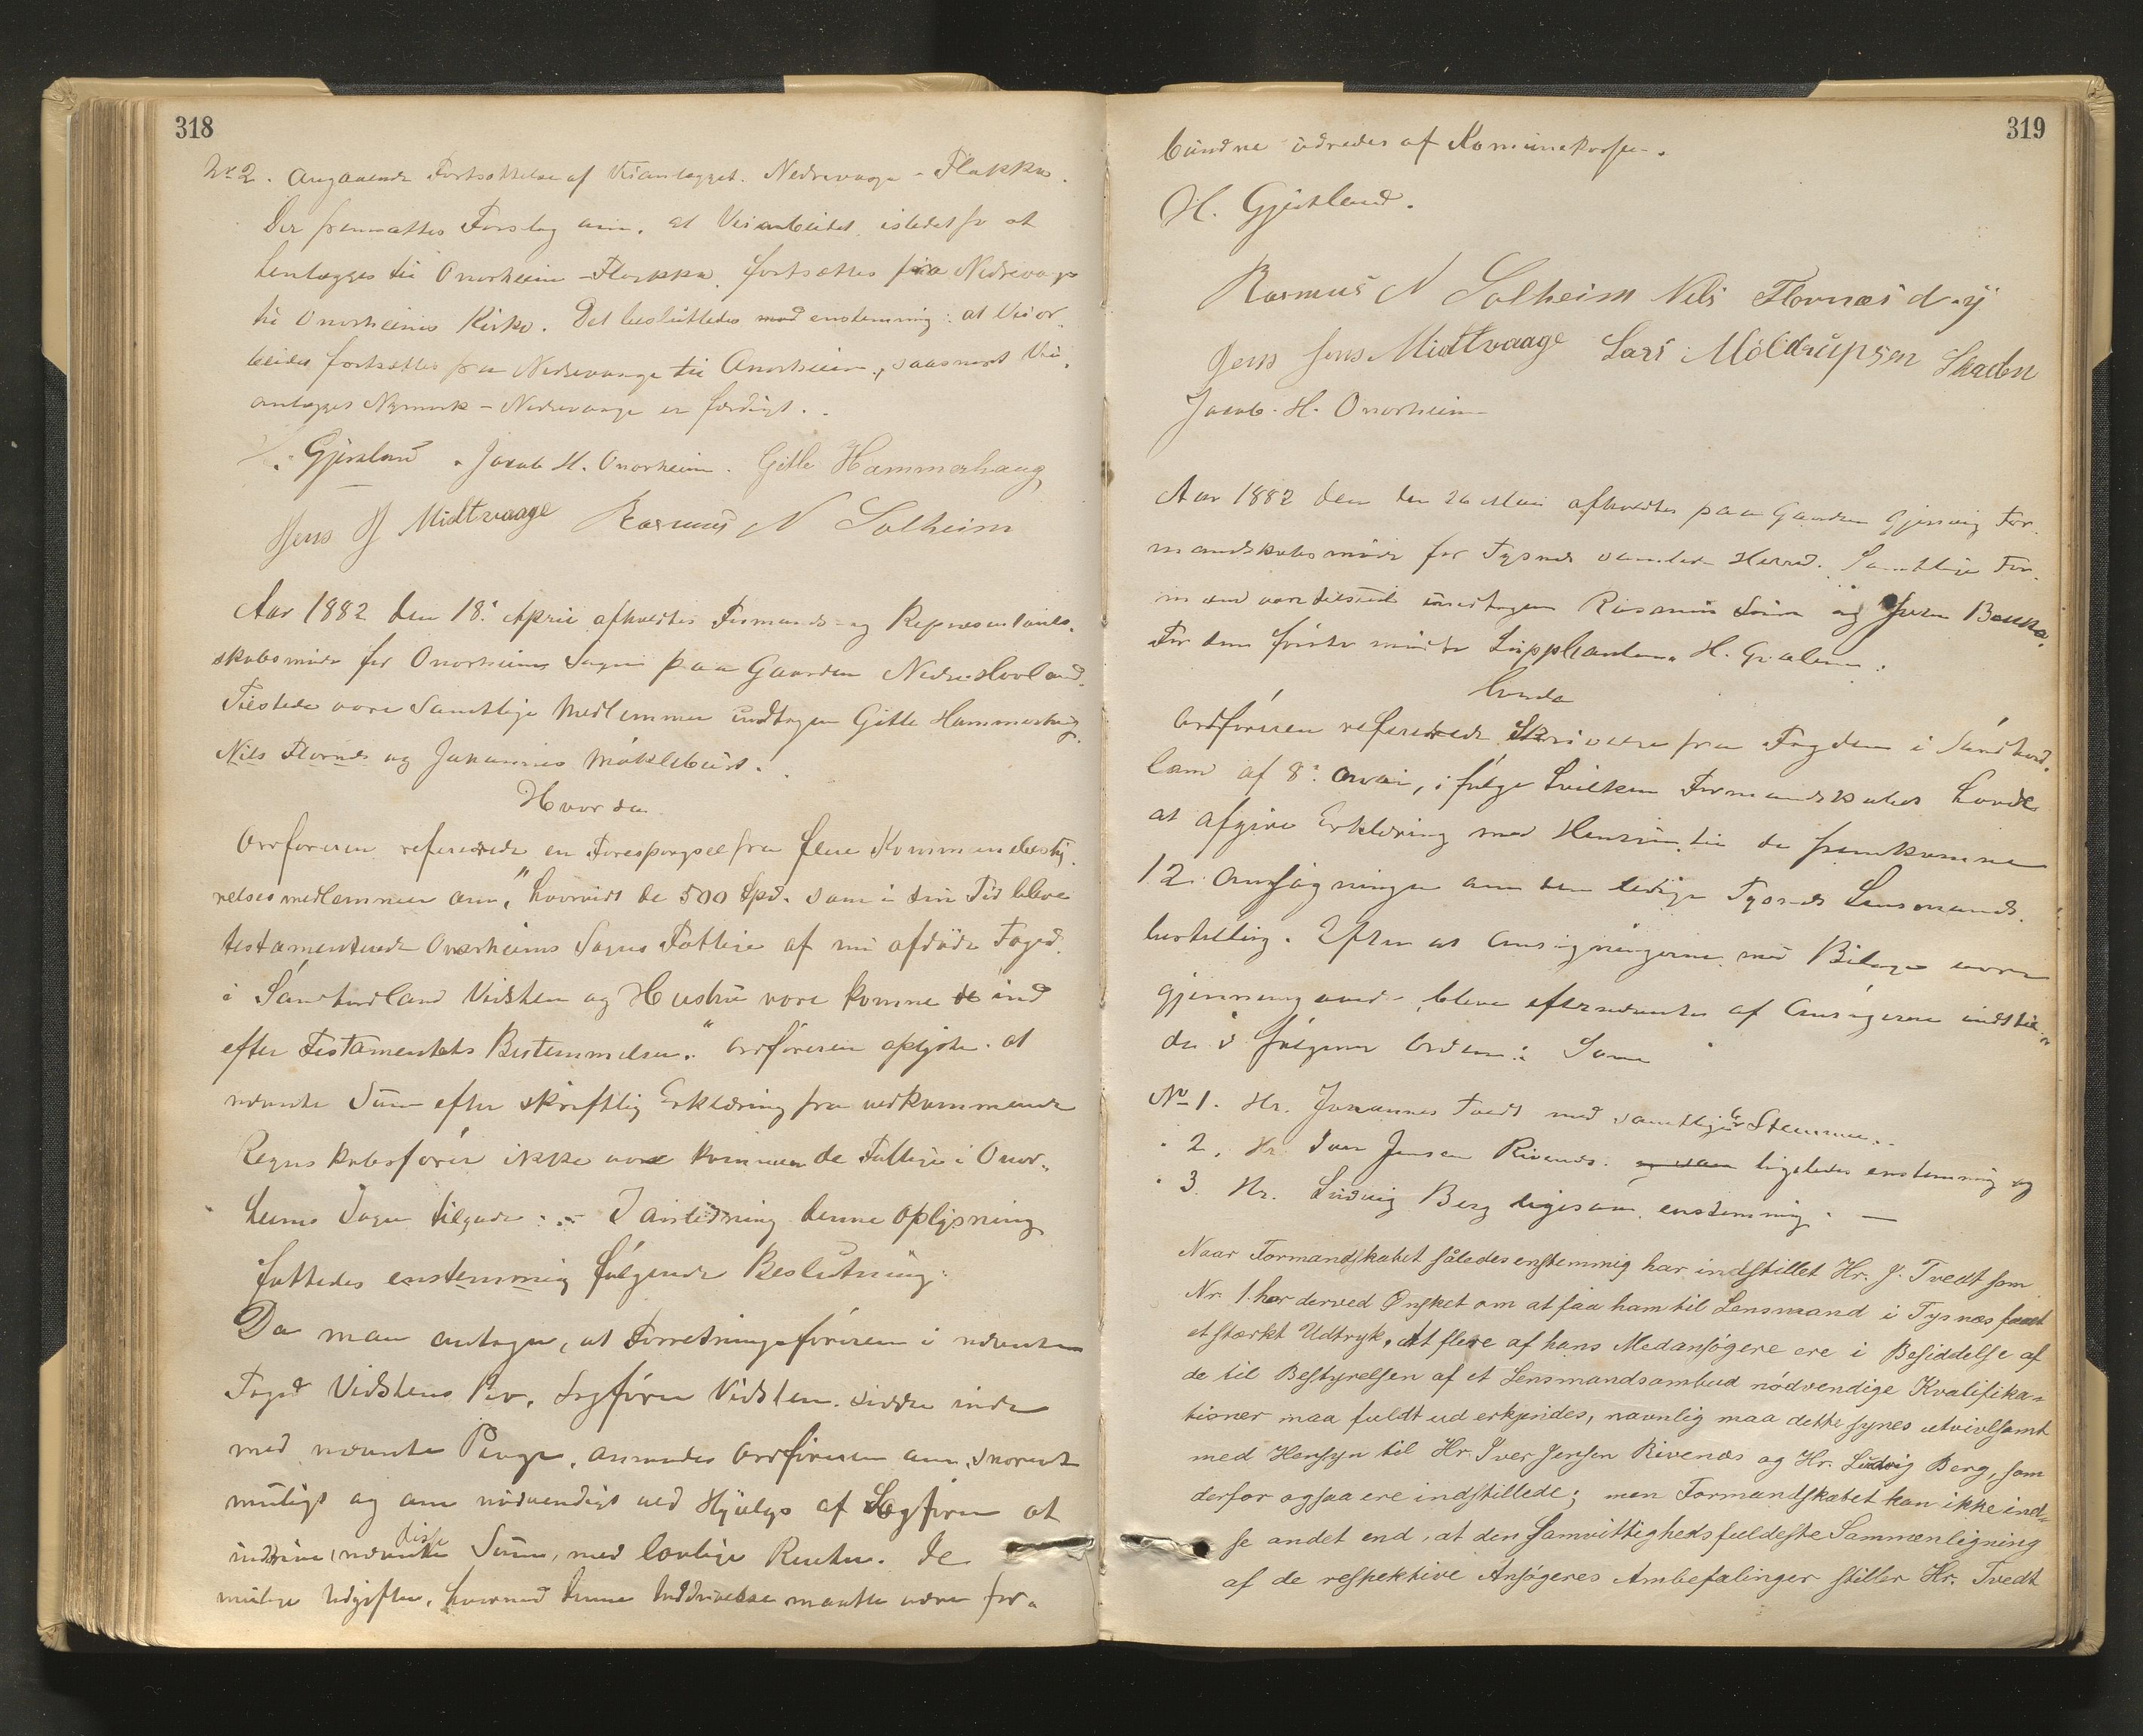 318
No 2. Angaaende Fortsættelse af Veianlægget Nedrevaage - Flakka.
Der fremsattes Forslag om, at Veiarbeidet istedetfor at
henlægges til Onarheim - Flakka, fortsættes fra Nedrevaage
til Onarheims Kirke. Det besluttedes med enstemmig: at Veiar-
beidet fortsættes fra Nedrevaage til Onarheim, saasnart Vei-
anlægget Nymark - Nedrevaage er færdigt.
Gjersland. Jacob H. Onarheim. Gitle Hammerhaug
Jens J Midtvaage Rasmus N Solheim
Aar 1882 den 18. April afholdtes Formands- og Repræsentant-
skabsmøde for Onarheims Sogn paa Gaarden Nedre Hovland.
Tilstede vare Samtlige Medlemmer undtagen Gitle Hammerhaug,
Nils Flornes og Johannes Møklebust.
Hvorda
Ordføreren refererede en Forespørgsel fra flere Kommunebesty-
relsesmedlemmer om, "hvorvidt de 500 Spd. som i sin Tid bleve
testamenterede Onarheims Sogns Fattige af nu afdøde Foged
i Sundhordland Vidsten og Hustru vare komne de ind
efter Testamentets Bestemmelse." Ordføreren oplyste at
nævnte Sum efter skriftlig Erklæring fra vedkommende
Regnskabsfører ikke vare kommen de Fattige i Onar-
heims Sogn tilgode. I anledning denne Oplysning
fattedes enstemmig følgende Beslutning:
Da man antager, at Forretningsføreren i nævnte
Foged Vidstens Bo, Sagfører Vidsten sidder inde
med nævnte Penge, anmodes Ordføreren om, snarest
muligt og om nødvendigt ved Hjælp af Sagfører at
inddrive disse nævnte Sum, med lovlige Renter. De
mulige Udgifter, hvormed denne Inddrivelse maatte være for-
319
bundne udredes af Kommunekassen.
H. Gjersland.
Rasmus N Solheim Nils Flornæs d.y
Jens Jens Midtvaage Lars Möldrupsen Skaden
Jacob H. Onarheim
Aar 1882 den 26 Mai afholdtes paa Gaarden Gjersvig For-
mandskabsmøde for Tysnes samlede Herred. Samtlige For-
mænd vare tilstede undtagen Rasmus og
For den første mødte Suppleanten H.
hvorda
Ordføreren refererede Skrivelse fra Fogden i Søndhord-
land af 8., ifølge hvilken Formandskabet havde
at afgive Erklæring med Hensyn til de fremkomne
12 Ansøgninger om den ledige Tysnes Lensmands-
bestilling. Efter at Ansøgningerne med Bilage vare
gjennemgaaede, bleve efternævnte af Ansøgerne indstil-
de i følgende Orden: Som
No 1. Hr. Johannes Tvedt med samtlige Stemmer.
" 2. Hr. Iver Jensen Rivenæs. ligeledes enstemmig og
" 3. Hr. Ludvig Berg ligesaa enstemmig. —
Naar Formandskabet således enstemmig har indstillet Hr. J. Tvedt som
Nr. 1. har derved Ønsket om at faa ham til Lensmand i Tysnæs faaet
et stærkt Udtryk. At flere af hans Medansøgere ere i Besiddelse af
de til Bestyrelsen af et Lensmandsombud nödvendige Kvalifika-
tioner maa fuldt ud erkjendes, navnlig maa dette synes utvivlsomt
med Hensyn til Hr. Iver Jensen Rivenæs og Hr. Ludvig Berg, som
derfor ogsaa ere indstillede; men Formandskabet kan ikke ind-
se andet end, at den samvittighedsfuldeste Sammenligning
af de respektive Ansøgeres Anbefalinger stiller Hr. Tvedt